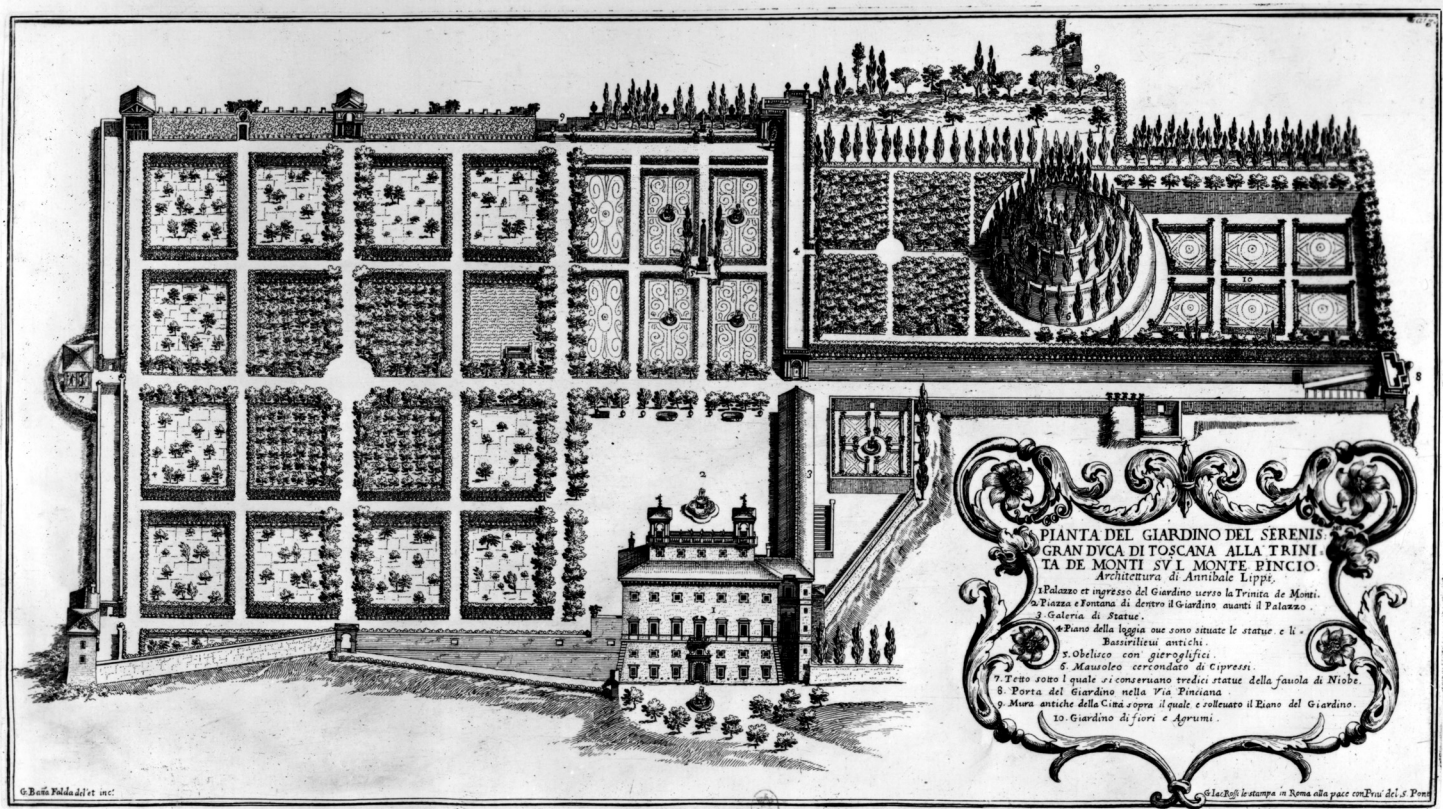 PIANTA DEL GIARDINO DEL SERENIS:
GRAN DVCA DI TOSCANA ALLA TRINI
TA DE MONTI SVL MONTE PINCIO.
Architettura di Annibale Lippi,
1 Palazzo et ingresso del Giardino uerso la Trinita de Monti.
2 Piazza e Fontana di dentro il Giardino auanti il Palazzo.
3. Galeria di Statue.
4 Piano della loggia oue sono situate le statue e li
Bassirilieui antichi.
5. Obelisco con gieroglifici.
6. Mausoleo cercondato di Cipressi.
7. Tetto sotto l quale si conseruano tredici statue della fauola di Niobe.
8. Porta del Giardino nella Via Pinciana.
9. Mura antiche della Città sopra il quale e solleuato il Piano del Giardino.
10. Giardino di fiori e Agrumi.
9
9
4
10
6
7
8
2
3
1
G. Batta Falda del. et inc.
G. Iac. Rossi le stampa in Roma alla pace con Priu. del S. Pont.